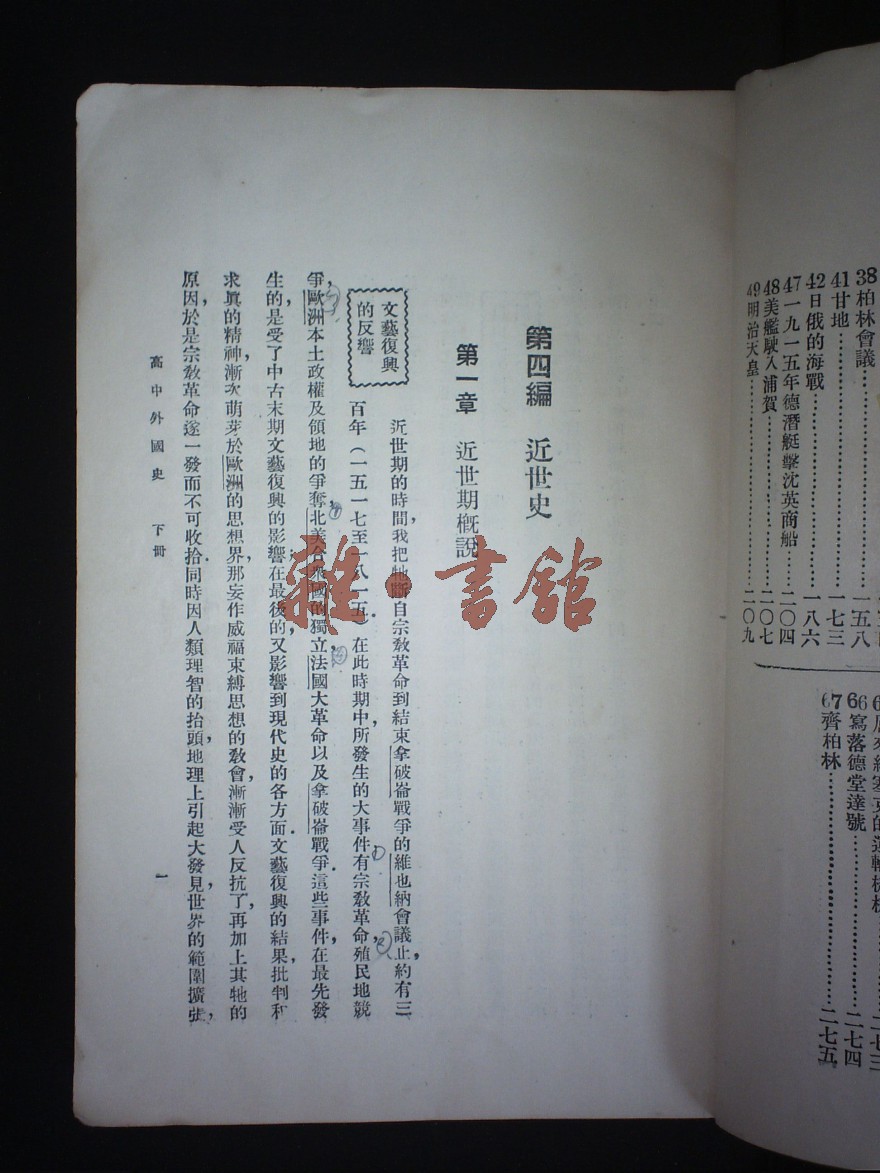 38柏林會議⋯⋯一五八
41甘地⋯⋯一七三
42日俄的海戰⋯⋯一八六
47一九一五年德潛艇擊沈英商船⋯⋯二〇四
48美艦駛入浦賀⋯⋯二〇七
49明治天皇⋯⋯二〇九
66寫落德堂達號⋯⋯二七四
67齊柏林⋯⋯二七五
第四編 近世史
第一章 近世期概說
文藝復興的反響
近世期的時間,我把牠斷自宗教革命到結束拿破崙戰爭的維也納會議止,約有三
百年(一五一七至一八一五)。在此時期中,所發生的大事件,有宗教革命,殖民地競
爭,歐洲本土政權及領地的爭奪,北美合衆國的獨立,法國大革命以及拿破崙戰爭.這些事件,在最先發
生的,是受了中古末期文藝復興的影響;在最後的,又影響到現代史的各方面.文藝復興的結果,批判和
求眞的精神,漸次萌芽於歐洲的思想界,那妄作威福束縛思想的教會,漸漸受人反抗了,再加上其牠的
原因,於是宗教革命遂一發而不可收拾.同時因人類理智的抬頭,地理上引起大發見,世界的範圍擴張,
高中外國史 下冊
一
雜·書館